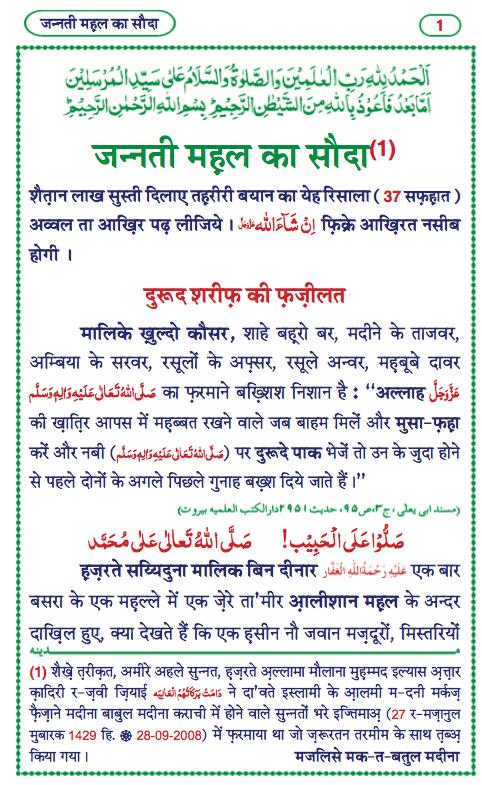 जन्नती महल का सौदा
1
اَلْحَمْدُ لِلّٰهِ رَبِّ الْعٰلَمِيْنَ وَالصَّلٰوةُ وَالسَّلَامُ عَلٰى سَيِّدِ الْمُرْسَلِيْنَ
اَمَّا بَعْدُ فَاَعُوْذُ بِاللّٰهِ مِنَ الشَّيْطٰنِ الرَّجِيْمِ بِسْمِ اللّٰهِ الرَّحْمٰنِ الرَّحِيْمِ
जन्नती महल का सौदा(1)
शैतान लाख सुस्ती दिलाए तहरीरी बयान का येह रिसाला ( 37 सफ़हात )
अव्वल ता आख़िर पढ़ लीजिये । اِنْ شَآءَاللّٰه عَزَّوَجَلَّ फ़िक्रे आख़िरत नसीब
होगी ।
दुरूद शरीफ़ की फ़ज़ीलत
मालिके ख़ुल्दो कौसर, शाहे बहूरो बर, मदीने के ताजवर,
अम्बिया के सरवर, रसूलों के अफ़्सर, रसूले अन्वर, महबूबे दावर
صَلَّى اللّٰهُ تَعَالٰى عَلَيْهِ وَاٰلِهٖ وَسَلَّم का फ़रमाने बख़्शिश निशान है : ‘‘अल्लाह عَزَّوَجَلَّ
की ख़ातिर आपस में महब्बत रखने वाले जब बाहम मिलें और मुसा-फ़हा
करें और नबी (صَلَّى اللّٰهُ تَعَالٰى عَلَيْهِ وَاٰلِهٖ وَسَلَّم) पर दुरूदे पाक भेजें तो उन के जुदा होने
से पहले दोनों के अगले पिछले गुनाह बख़्श दिये जाते हैं ।’’
(مسند ابی یعلی، ج۳، ص۹۵، حدیث ۲۹۵۱ دارالکتب العلمیه بیروت)
صَلُّوْا عَلَى الْحَبِيْب! صَلَّى اللّٰهُ تَعَالٰى عَلٰى مُحَمَّد
हज़रते सय्यिदुना मालिक बिन दीनार عَلَيْهِ رَحْمَةُ اللّٰهِ الْغَفَّار एक बार
बसरा के एक महल्ले में एक ज़ेरे ता'मीर आ़लीशान महल के अन्दर
दाख़िल हुए, क्या देखते हैं कि एक हसीन नौ जवान मज़दूरों, मिस्तरियों
مدينه
(1) शैख़े तरीक़त, अमीरे अहले सुन्नत, हज़रते अ़ल्लामा मौलाना मुहम्मद इल्यास अ़त्तार
क़ादिरी र-ज़वी ज़ियाई دَامَتْ بَرَكَاتُهُمُ الْعَالِيَه ने दा'वते इस्लामी के आ़लमी म-दनी मर्कज़
फ़ैज़ाने मदीना बाबुल मदीना कराची में होने वाले सुन्नतों भरे इज्तिमाअ़ (27 र-मज़ानुल
मुबारक 1429 हि. 28-09-2008) में फ़रमाया था जो ज़रूरतन तरमीम के साथ तब्अ़
किया गया । मजलिसे मक-त-बतुल मदीना